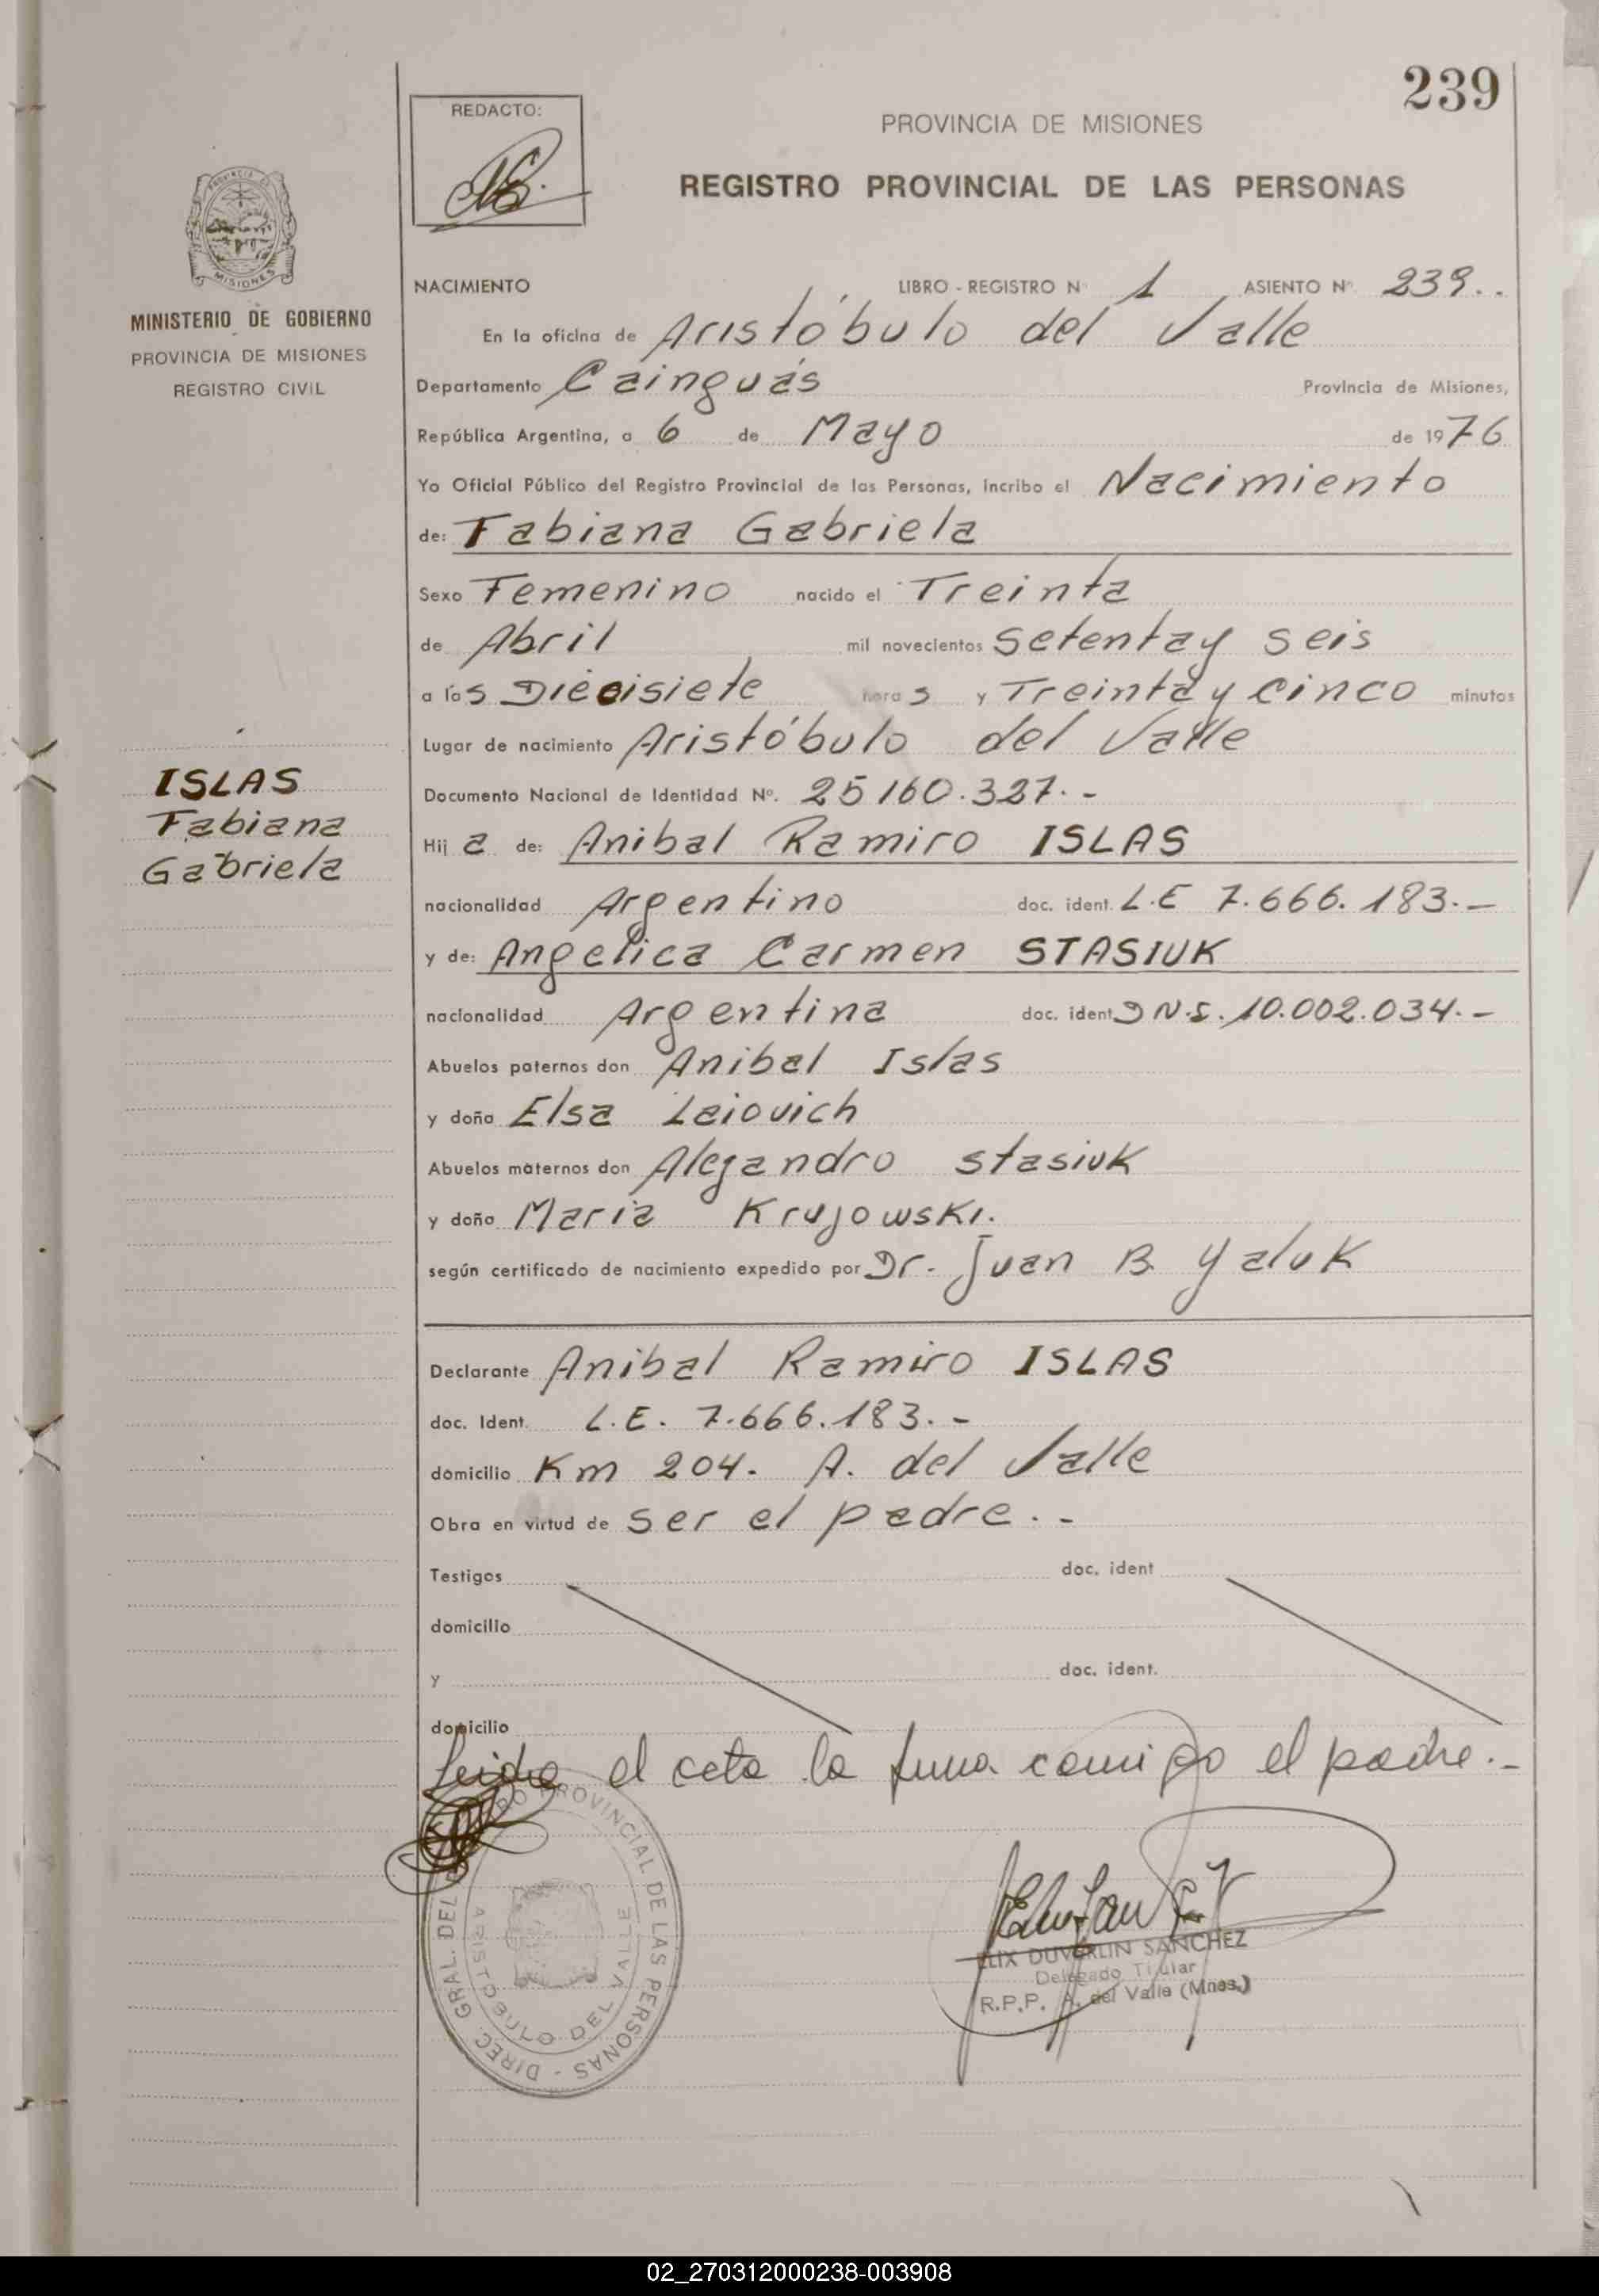 239
REDACTO:
PROVINCIA DE MISIONES
REGISTRO PROVINCIAL DE LAS PERSONAS
MISIONES
MINISTERIO DE GOBIERNO
PROVINCIA DE MISIONES
REGISTRO CIVIL
NACIMIENTO LIBRO - REGISTRO Nº 1 ASIENTO Nº 239..
En la oficina de Aristóbulo del Valle
Departamento Cainguás Provincia de Misiones,
República Argentina, a 6 de Mayo de 1976
Yo Oficial Público del Registro Provincial de las Personas, incribo el Nacimiento
de: Fabiana Gabriela
Sexo Femenino nacido el Treinta
de Abril mil novecientos setenta y seis
a las Diecisiete horas y Treinta y cinco minutos
Lugar de nacimiento Aristóbulo del Valle
ISLAS
Fabiana
Gabriela
Documento Nacional de Identidad Nº. 25160.327.-
Hija de: Anibal Ramiro ISLAS
nacionalidad Argentino doc. ident. L.E 7.666.183.-
y de: Angelica Carmen STASIUK
nacionalidad Argentina doc. ident D N.I. 10.002.034.-
Abuelos paternos don Anibal Islas
y doña Elsa Laiovich
Abuelos maternos don Alejandro Stasiuk
y doña Maria Krujowski.
según certificado de nacimiento expedido por Dr. Juan B. Yaluk
Declarante Anibal Ramiro ISLAS
doc. Ident. L.E. 7.666.183.-
domicilio Km 204. A. del Valle
Obra en virtud de ser el padre.-
Testigos doc. ident
domicilio
y doc. ident.
domicilio
Leida el acta la firma conmigo el padre.-
DIREC. GRAL. DEL REGISTRO PROVINCIAL DE LAS PERSONAS -
ARISTOBULO DEL VALLE
ELIX DUVERLIN SANCHEZ
Delegado Titular
R.P.P. A. del Valle (Mnes.)
02_270312000238-003908